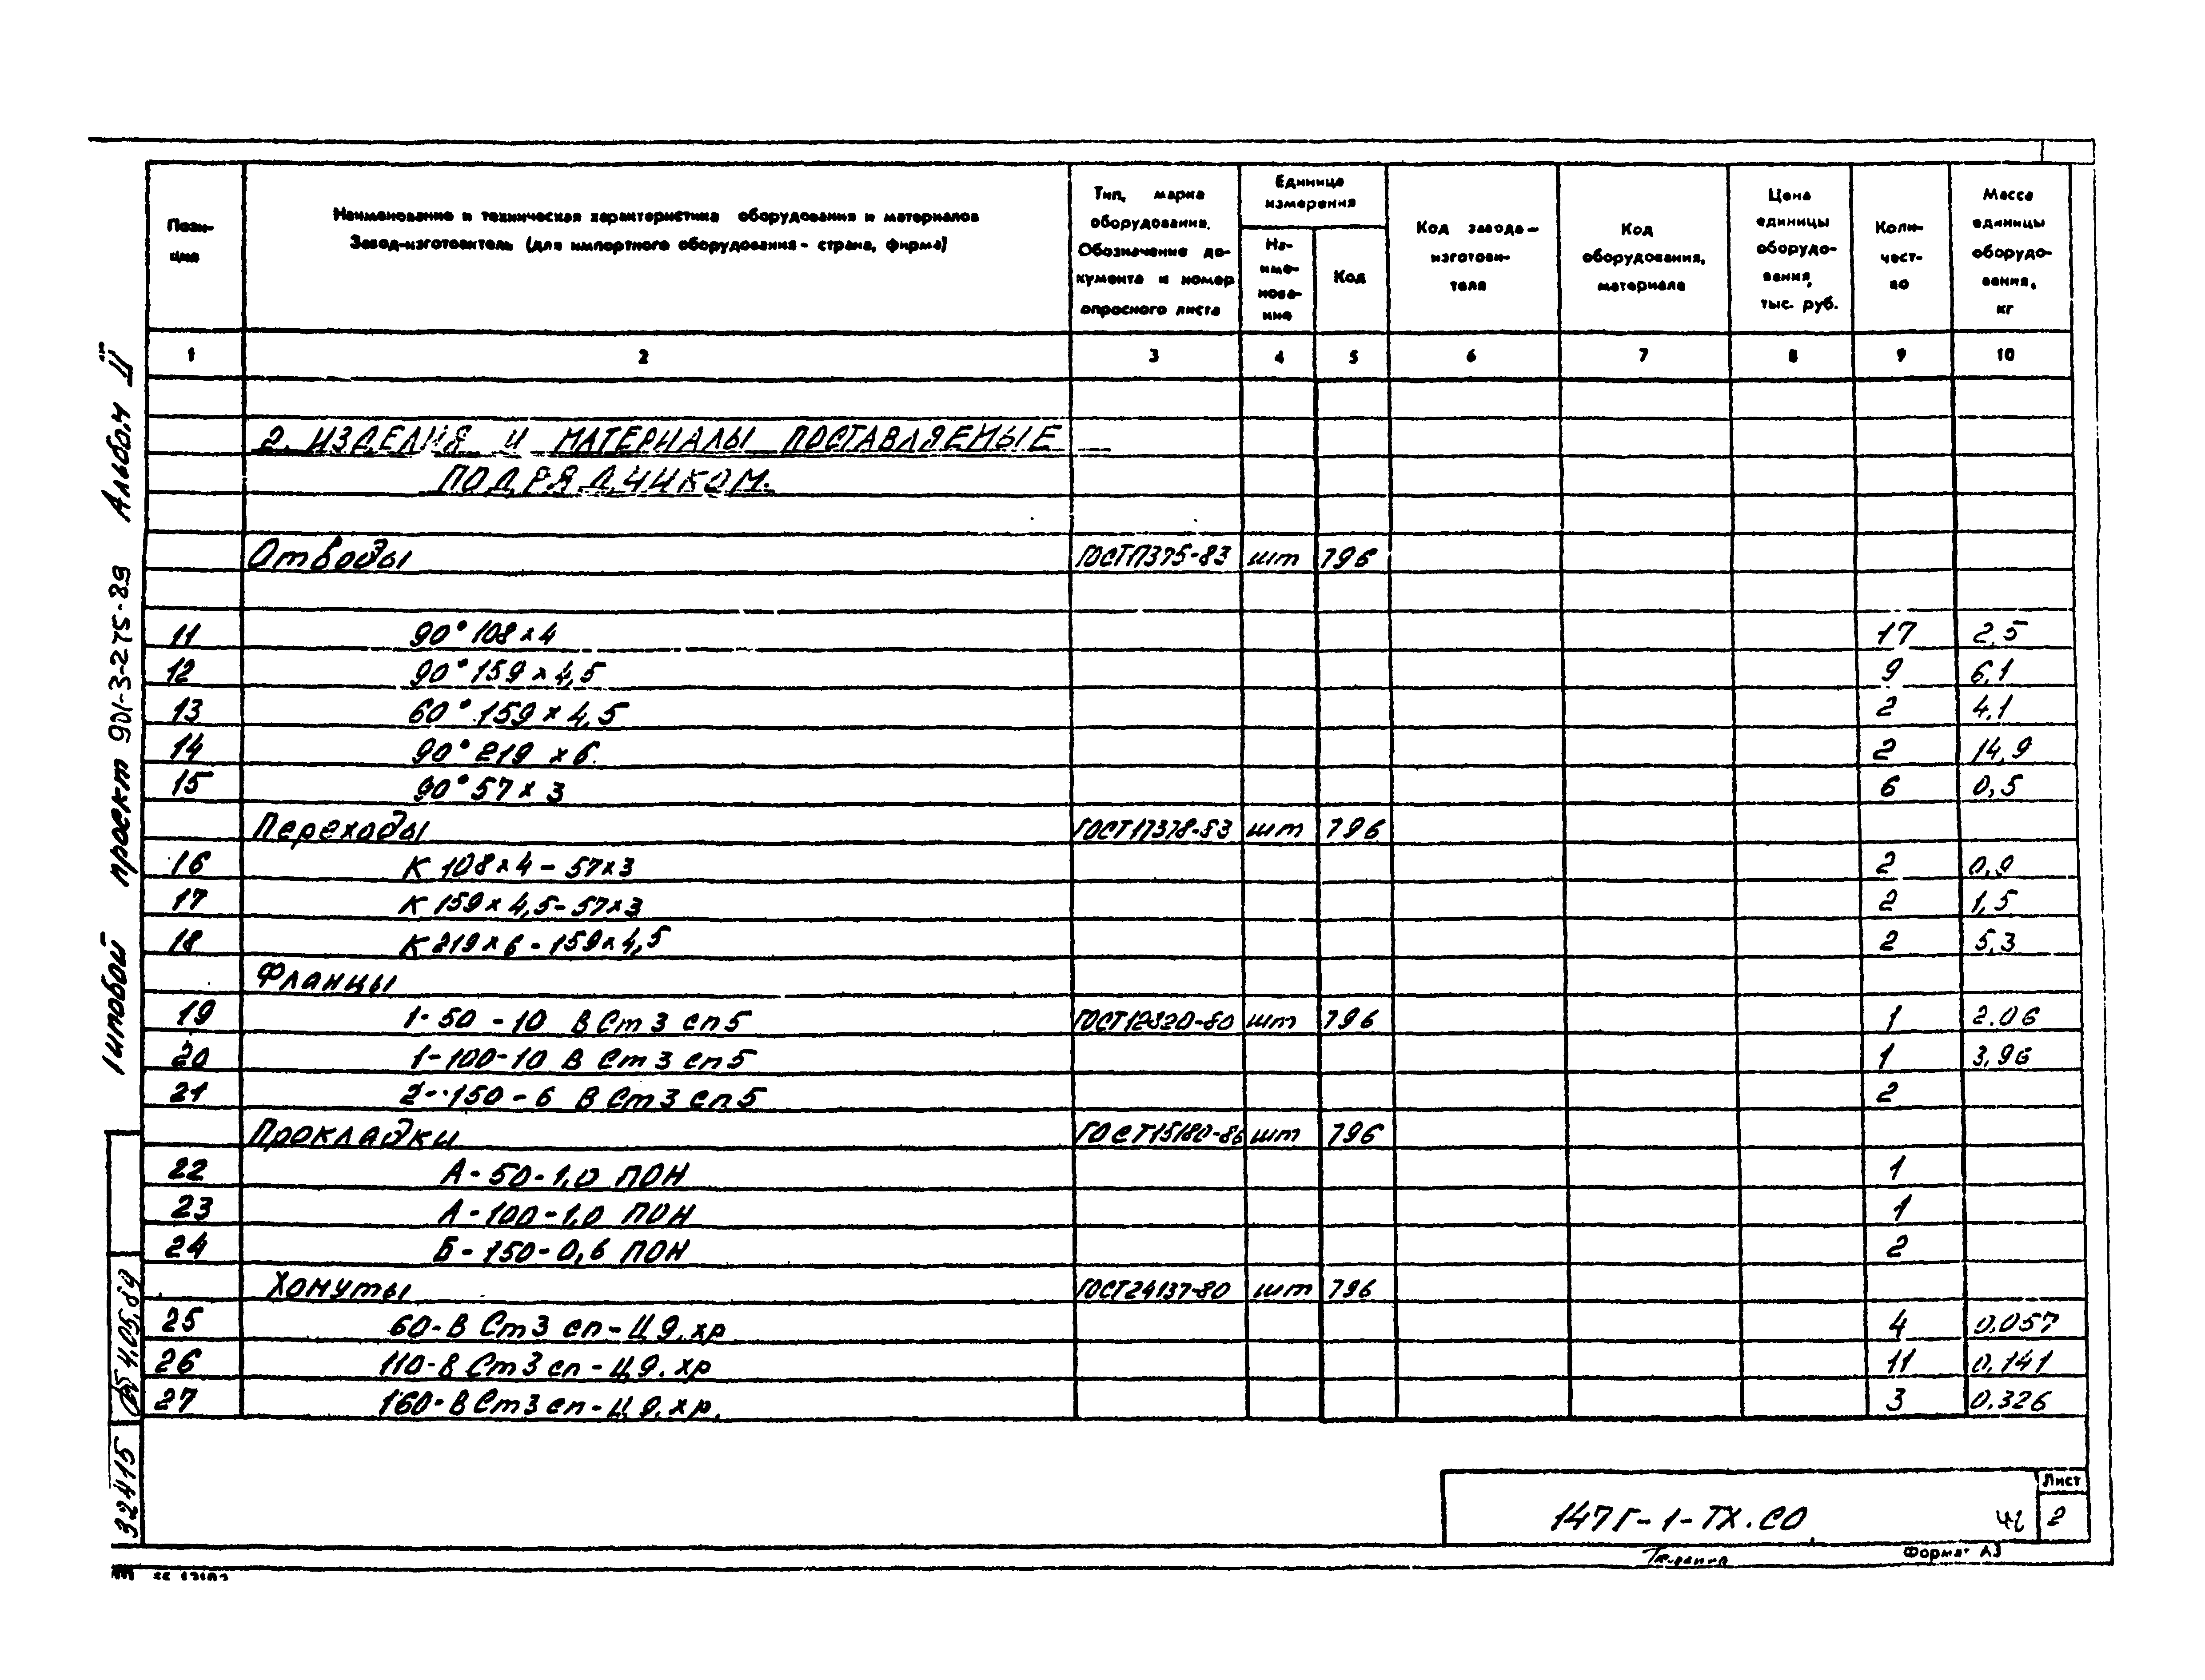 Пози-
ция
Наименование и техническая характеристика оборудования и материалов
Завод-изготовитель (для импортного оборудования - страна, фирма)
Тип, марка
оборудования.
Обозначение до-
кумента и номер
опросного листа
Единица
измерения
На-
име-
нова-
ние
Код
Код завода-
изготови-
теля
Код
оборудования,
материала
Цена
единицы
оборудо-
вания,
тыс. руб.
Коли-
чест-
во
Масса
единицы
оборудо-
вания,
кг
1 2 3 4 5 6 7 8 9 10
2. ИЗДЕЛИЯ И МАТЕРИАЛЫ ПОСТАВЛЯЕМЫЕ
ПОДРЯДЧИКОМ.
Отводы ГОСТ17375-83 шт 796
11 90° 108×4 17 2,5
12 90° 159×4,5 9 6,1
13 60° 159×4,5 2 4,1
14 90° 219×6 2 14,9
15 90° 57×3 6 0,5
Переходы ГОСТ17378-83 шт 796
16 К 108×4-57×3 2 0,9
17 К 159×4,5-57×3 2 1,5
18 К 219×6-159×4,5 2 5,3
Фланцы
19 1-50-10 ВСт3сп5 ГОСТ12820-80 шт 796 1 2.06
20 1-100-10 ВСт3сп5 1 3,96
21 2-150-6 ВСт3сп5 2
Прокладки ГОСТ15180-86 шт 796
22 А-50-1,0 ПОН 1
23 А-100-1,0 ПОН 1
24 Б-150-0,6 ПОН 2
Хомуты ГОСТ24137-80 шт 796
25 60-ВСт3сп-Ц9.хр 4 0,057
26 110-ВСт3сп-Ц9.хр 11 0,141
27 160-ВСт3сп-Ц9.хр. 3 0,326
Типовой проект 901-3-275-89 Альбом II
4.05.89
32415
147Г-1-ТХ.СО
Лист
2
Формат А3